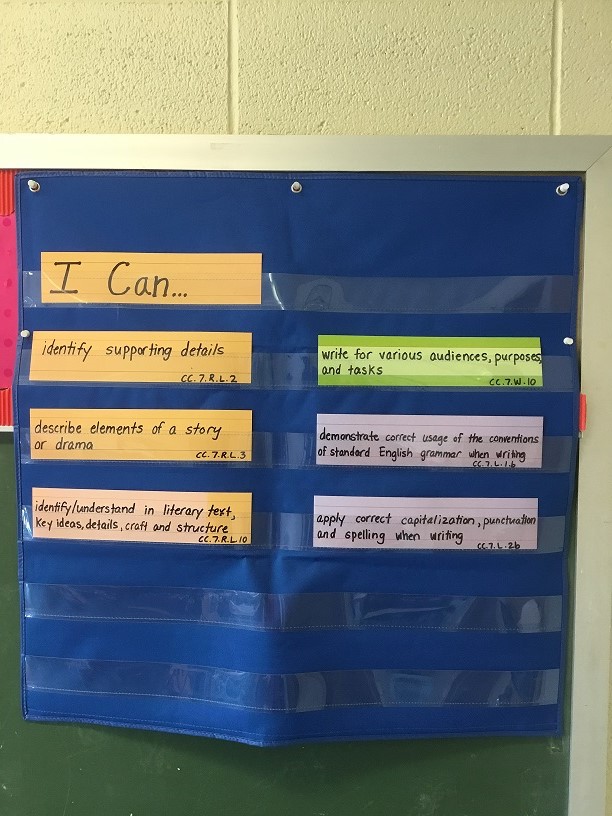 I Can...
identify supporting details
CC.7.R.L.2
describe elements of a story
or drama
CC.7.R.L.3
identify/understand in literary text,
Key ideas, details, craft and structure
CC.7.R.L 10
write for various audiences, purposes,
and tasks
CC.7.W.10
demonstrate correct usage of the conventions
of standard English grammar when writing
CC.7.L.1.b
apply correct capitalization, punctuation
and spelling when writing
CC.7.L.2b